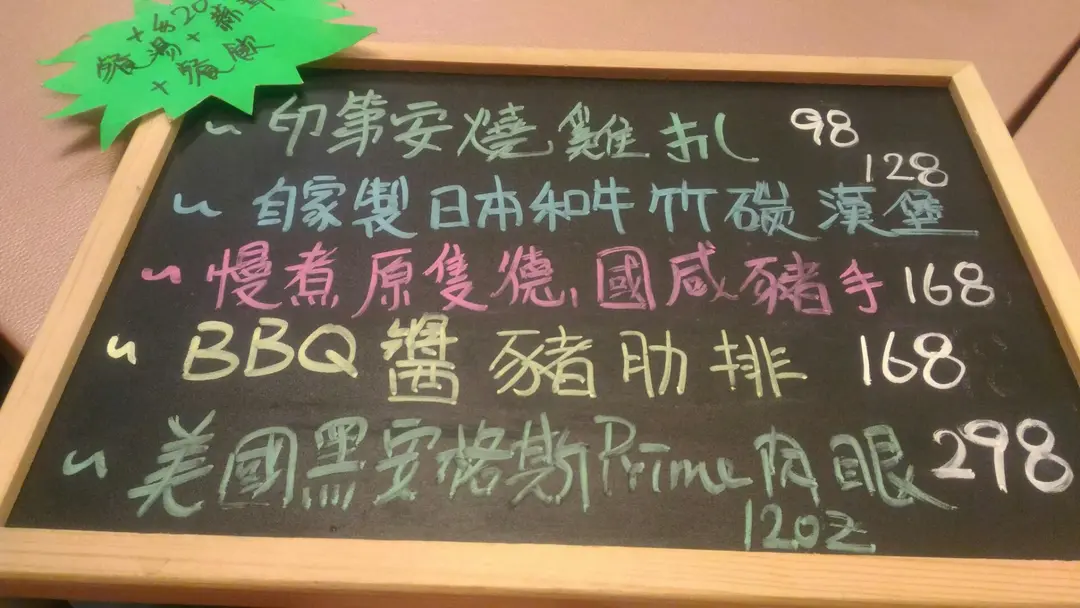 +$20
餐湯+
+餐飲
~ 印第安燒雞扎 98
128
~ 自家製日本和牛竹碳漢堡
~ 慢煮原隻德國咸豬手 168
~ BBQ醬豬肋排 168
~ 美國黑安格斯Prime肉眼 298
12oz